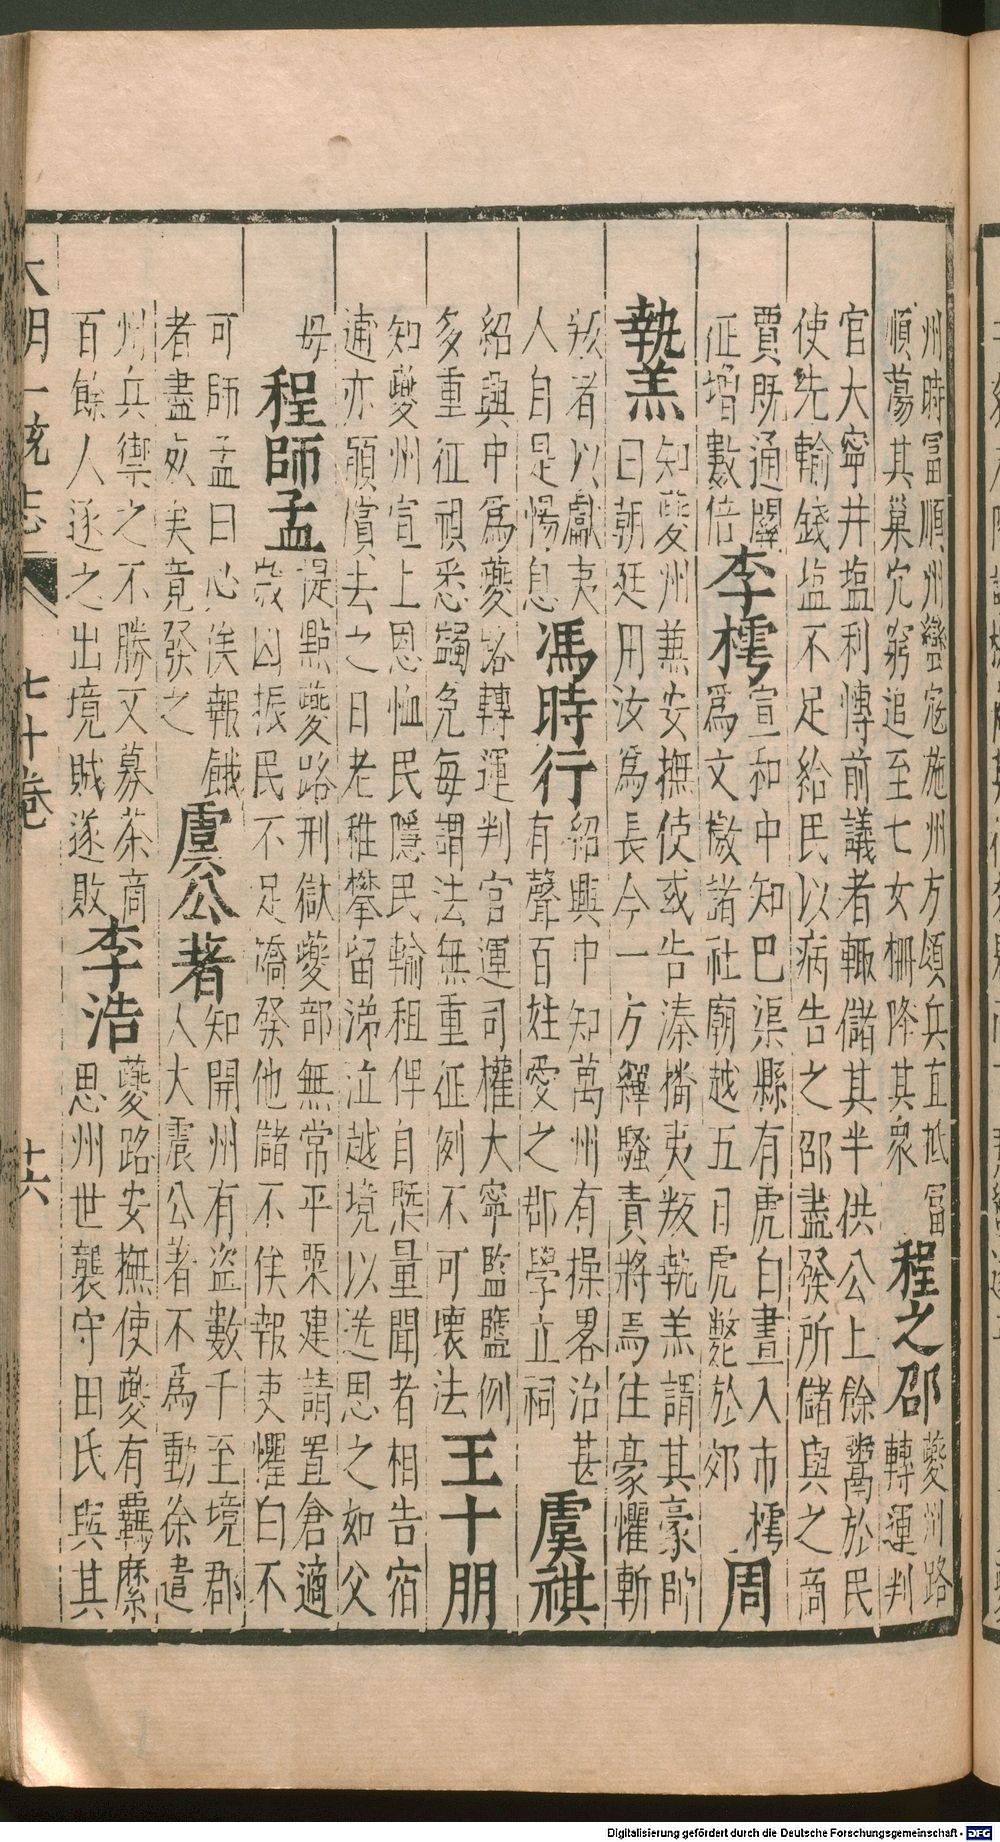 州時富順州蠻寇施州方傾兵直抵富
順蕩其巢穴窮追至七女柵降其衆
程之邵
夔州路
轉運判
官大寧井塩利慱前議者輙儲其半供公上餘鬻於民
使先輸錢塩不足給民以病告之邵盡發所儲與之商
賈既通關
征增數倍
李樗
宣和中知巴渠縣有虎白晝入市樗
爲文檄諸社廟越五日虎斃於郊
周
執羔
知夔州兼安撫使或告溱播夷叛執羔謂其豪帥
曰朝廷用汝爲長今一方繹騷責將焉往豪懼斬
叛者以獻夷
人自是惕息
馮時行
紹興中知萬州有操畧治甚
有聲百姓愛之郡學立祠
虞祺
紹興中爲夔路轉運判官運司權大寧監鹽例
多重征祺悉蠲免每謂法無重征例不可壞法
王十朋
知夔州宣上恩恤民隱民輸租俾自槩量聞者相告宿
逋亦願償去之日老稚攀留涕泣越境以送思之如父
母
程師孟
提點夔路刑獄夔部無常平粟建請置倉適
歲凶振民不足矯發他儲不俟報吏懼白不
可師孟曰必俟報餓
者盡死矣竟發之
虞公著
知開州有盜數千至境郡
人大震公著不爲動徐遣
州兵禦之不勝又募茶商
百餘人逐之出境賊遂敗
李浩
夔路安撫使夔有羈縻
思州世襲守田氏與其
大明一統志 七十卷 十六
Digitalisierung gefördert durch die Deutsche Forschungsgemeinschaft - DFG